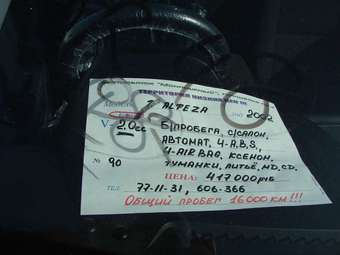 ТЕРРИТОРИЯ НИЗКИХ ЦЕН №
Модель T. ALTEZA год 2002
V= 2.0cc Б/ПРОБЕГА, С/САЛОН,
АВТОМАТ, 4-А.В.S,
4-AIR BAG, КСЕНОН,
№ 90 ТУМАНКИ, ЛИТЬЁ, MD, CD.
ЦЕНА: 417000 руб
ТЕЛ. 77-11-31, 606-366
ОБЩИЙ ПРОБЕГ 16000 КМ!!!